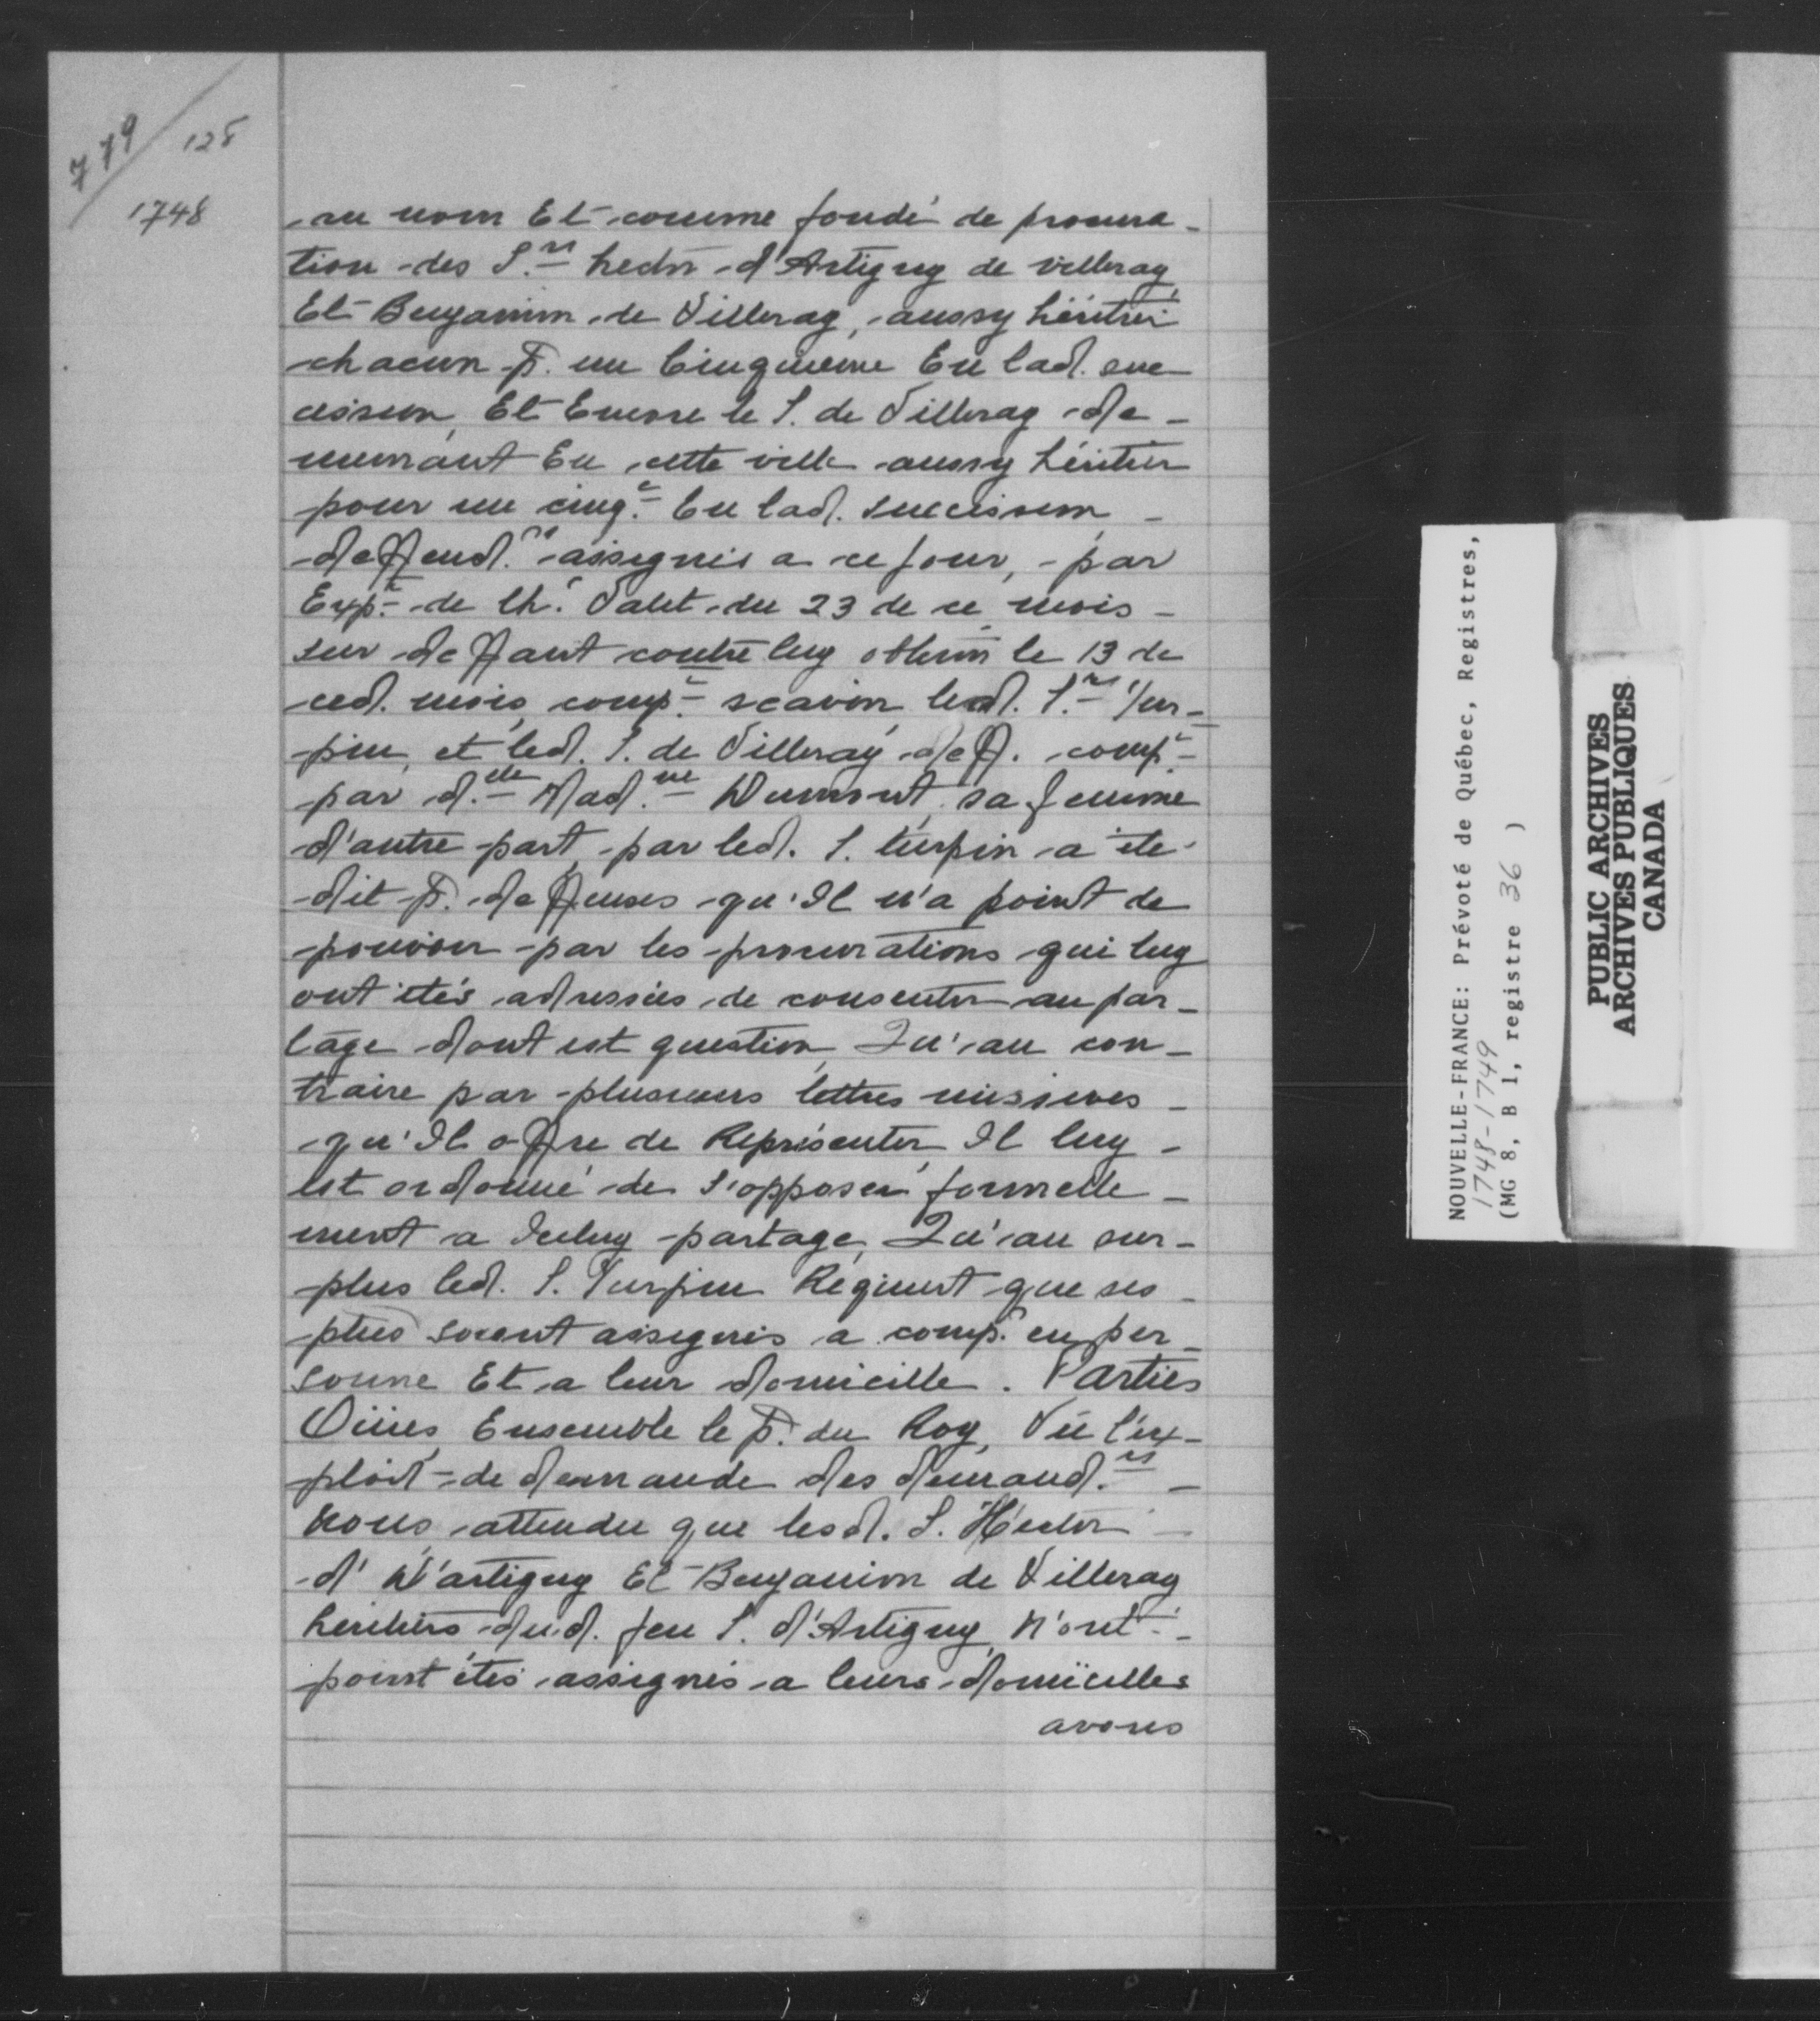 779
128
1748
au nom Et comme fondé de procura-
tion des S.rs hector d'Artigny de villeray,
Et Benjamin de Villeray, aussy héritier
chacun p. un Cinquieme En lad. suc-
cession, Et Encore le S. de Villeray de-
meurant En cette ville aussy héritier
pour un cinq.e En lad. succession -
deffend.rs assignés a ce jour, par
Exp.t de th. Valet du 23 de ce mois -
sur deffaut contre luy obtenu le 13 de
ced. mois, comp.t scavoir led. S.r Tur-
pin, et led. S. de Villeray deff. comp.t
par d.elle Mad.ne Dumont, sa femme
d'autre part, par led. S. turpin a été
dit p. deffenses qu'Il n'a point de
pouvoir par les procurations qui luy
ont étés adressées de consentir au par-
tage dont est question, Qu'au con-
traire par plusieurs lettres missives -
qu'Il offre de Représenter, Il luy -
est ordonné de s'opposer formelle-
ment a Iceluy partage, Qu'au sur-
plus led. S. Turpin Requiert que ses
pties soient assignés a comp. en per-
sonne Et a leur domicille. Parties
Oüies, Ensemble le p. du Roy, Vü l'ex-
ploit de demande des demand.rs -
nous, attendu que lesd. S. Héctor -
d' D'artigny Et Benjamin de Villeray
heritiers dud. feu S. d'Artigny, N'ont -
point étés assignés a leurs domicilles
avons
NOUVELLE-FRANCE: Prévoté de Québec, Registres,
1748-1749
(MG 8, B 1, registre 36 )
PUBLIC ARCHIVES
ARCHIVES PUBLIQUES
CANADA